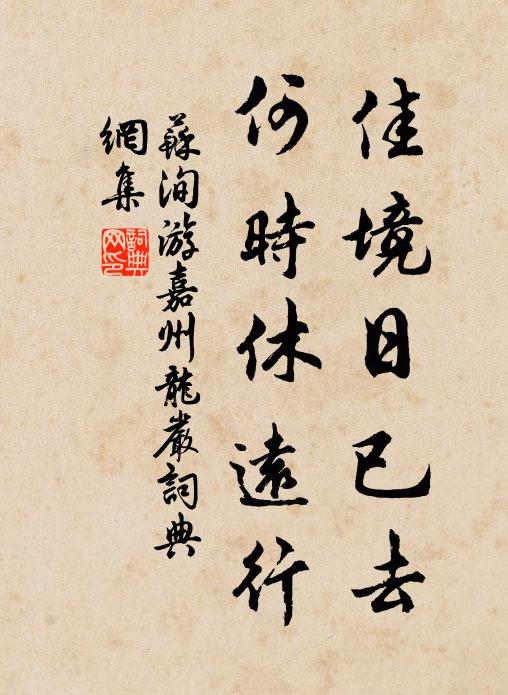 佳境日已去
何時休遠行
蘇洵游嘉州龍嚴詞典
網集
詞典網印